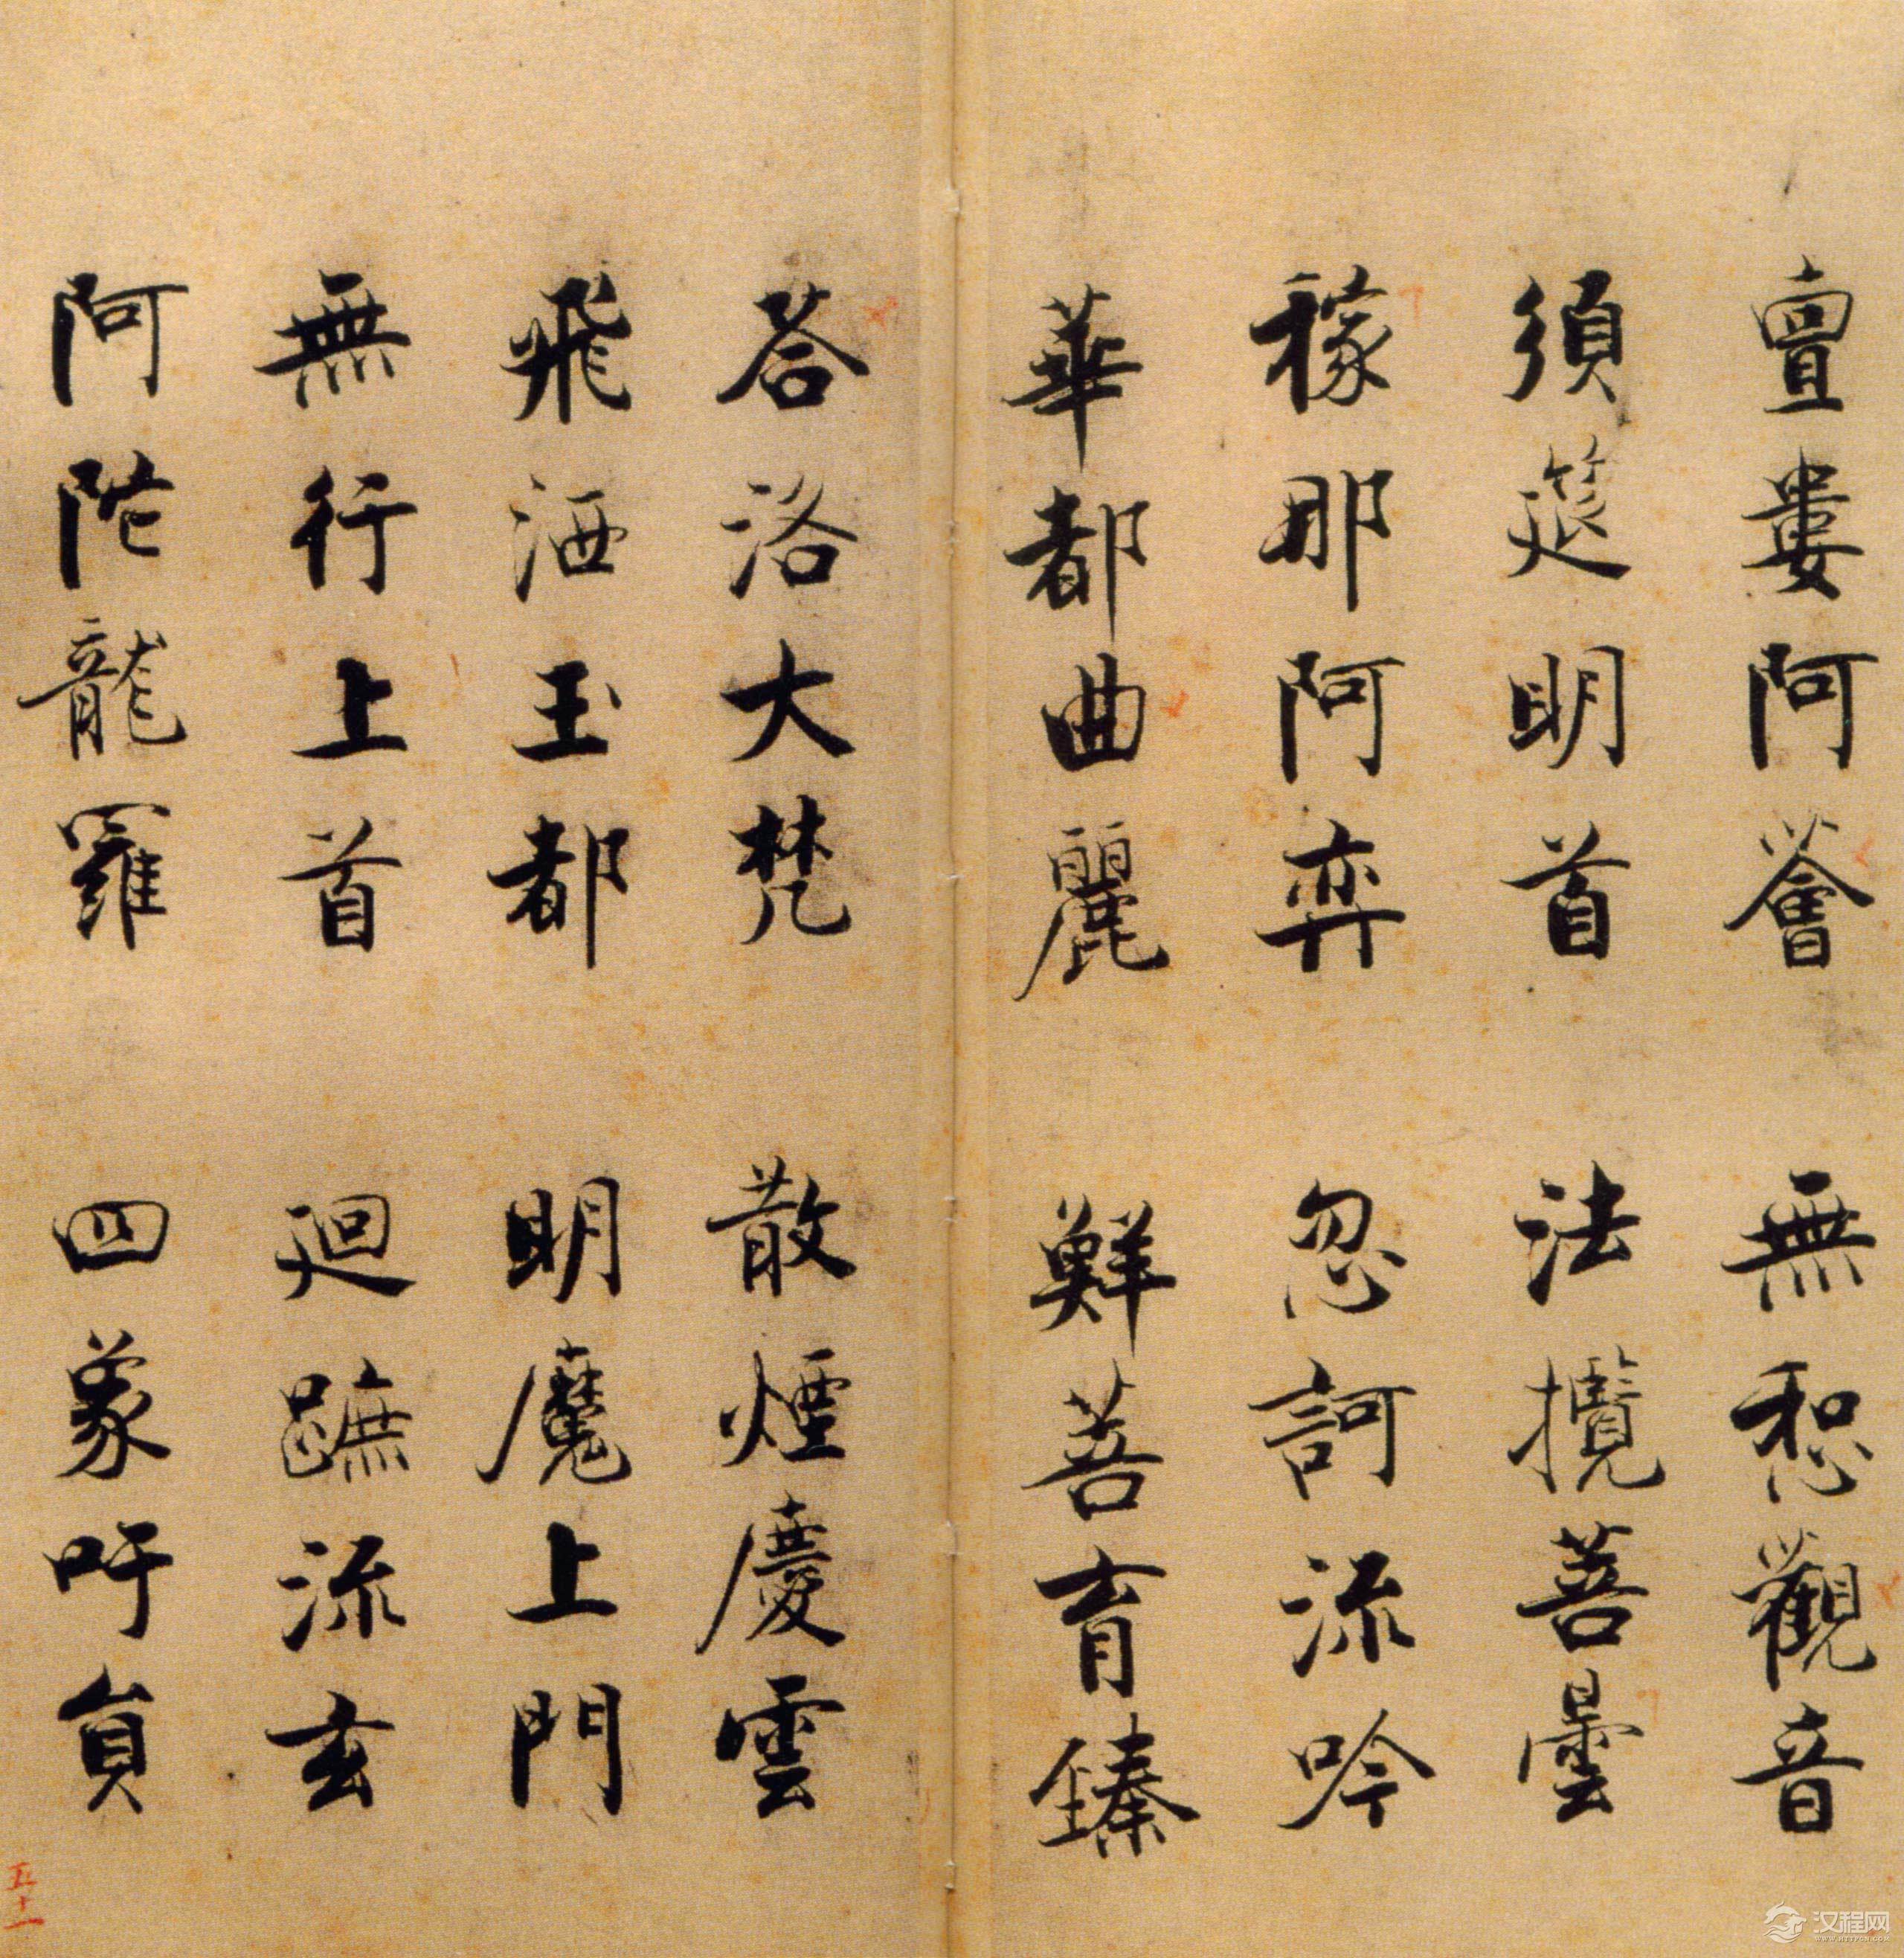 亶婁阿薈 無惒觀音
須筵明首 法攬菩曇
稼那阿弈 忽訶流吟
華都曲麗 鮮菩育臻
荅洛大梵 散煙慶雲
飛洒玉都 明魔上門
無行上首 迴蹠流玄
阿陁龍羅 四象吁員
五十一
汉程网
WWW.HTTPCN.COM